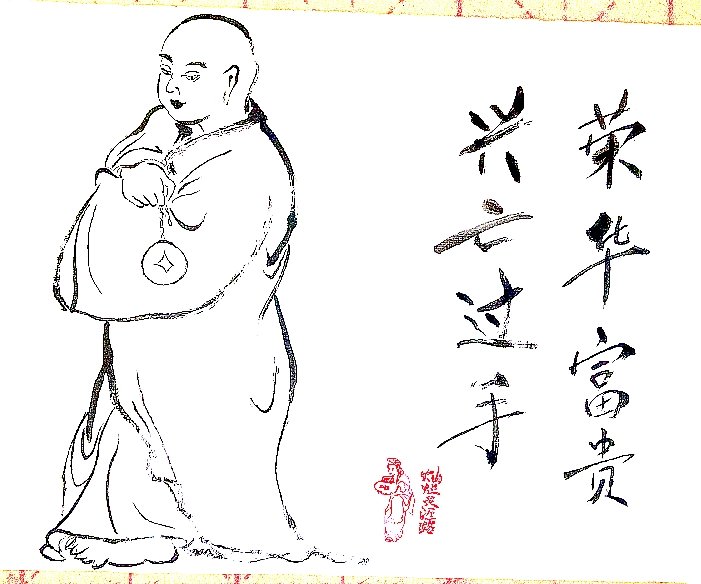 荣华富贵
兴亡过手